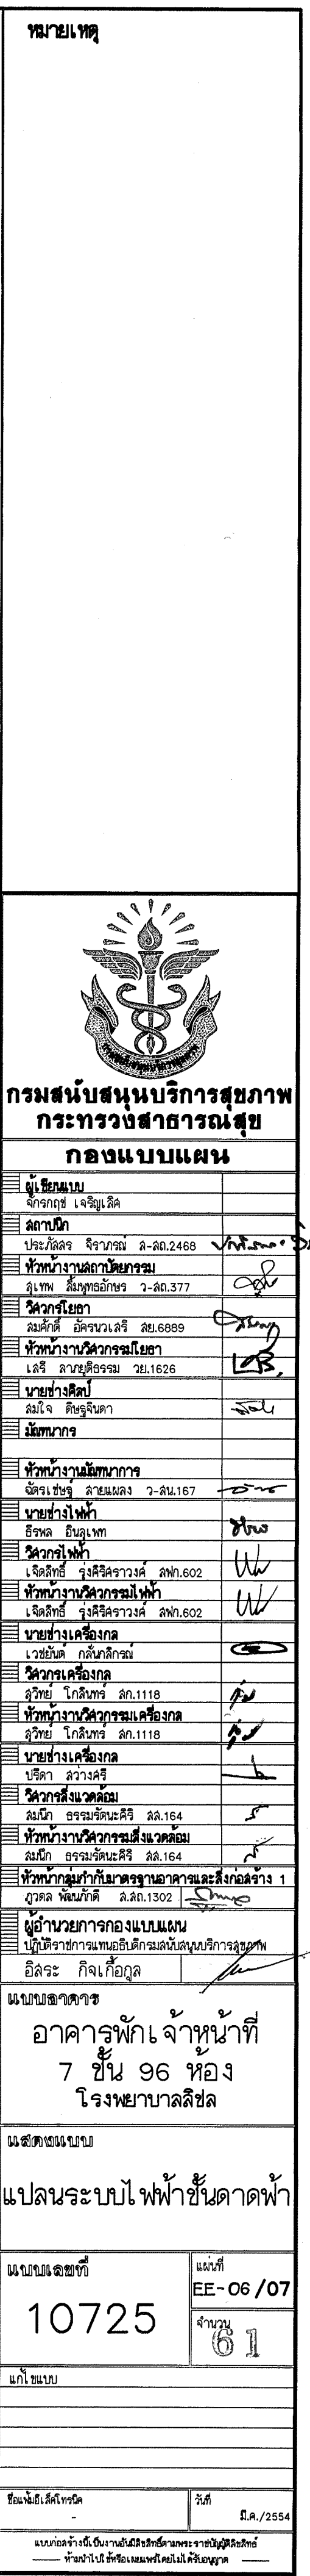 หมายเหตุ
กรมสนับสนุนบริการสุขภาพ
กรมสนับสนุนบริการสุขภาพ
กระทรวงสาธารณสุข
กองแบบแผน
ผู้เขียนแบบ
จักรกฤช เจริญเลิศ
สถาปนิก
ประภัสสร จิราภรณ์ ส-สถ.2468
หัวหน้างานสถาปัตยกรรม
สุเทพ ลิ้มพุทธอักษร ว-สถ.377
วิศวกรโยธา
สมศักดิ์ อัครนวเสรี สย.6889
หัวหน้างานวิศวกรรมโยธา
เสรี ลาภยุติธรรม วย.1626
นายช่างศิลป์
สมใจ ดิษฐจินดา
มัณฑนากร
หัวหน้างานมัณฑนาการ
ฉัตรเชษฐ์ สายแผลง ว-สน.167
นายช่างไฟฟ้า
ธีรพล อินสุเพท
วิศวกรไฟฟ้า
เจิดสิทธิ์ รุ่งศิริศราวงศ์ สฟก.602
หัวหน้างานวิศวกรรมไฟฟ้า
เจิดสิทธิ์ รุ่งศิริศราวงศ์ สฟก.602
นายช่างเครื่องกล
เวชยันต์ กลั่นกสิกรณ์
วิศวกรเครื่องกล
สุวิทย์ โกสินทร์ สก.1118
หัวหน้างานวิศวกรรมเครื่องกล
สุวิทย์ โกสินทร์ สก.1118
นายช่างเครื่องกล
ปรีดา สว่างศรี
วิศวกรสิ่งแวดล้อม
สมนึก ธรรมรัตนะศิริ สส.164
หัวหน้างานวิศวกรรมสิ่งแวดล้อม
สมนึก ธรรมรัตนะศิริ สส.164
หัวหน้ากลุ่มกำกับมาตรฐานอาคารและสิ่งก่อสร้าง 1
ภูวดล พัฒนภักดี ส.สถ.1302
ผู้อำนวยการกองแบบแผน
ปฏิบัติราชการแทนอธิบดีกรมสนับสนุนบริการสุขภาพ
อิสระ กิจเกื้อกูล
แบบอาคาร
อาคารพักเจ้าหน้าที่
7 ชั้น 96 ห้อง
โรงพยาบาลสิชล
แสดงแบบ
แปลนระบบไฟฟ้าชั้นดาดฟ้า
แบบเลขที่
10725
แผ่นที่
EE-06/07
จำนวน
61
แก้ไขแบบ
ชื่อแฟ้มอิเล็คโทรนิค
-
วันที่
มี.ค./2554
แบบก่อสร้างนี้เป็นงานอันมีลิขสิทธิ์ตามพระราชบัญญัติลิขสิทธิ์
ห้ามนำไปใช้หรือเผยแพร่โดยไม่ได้รับอนุญาต